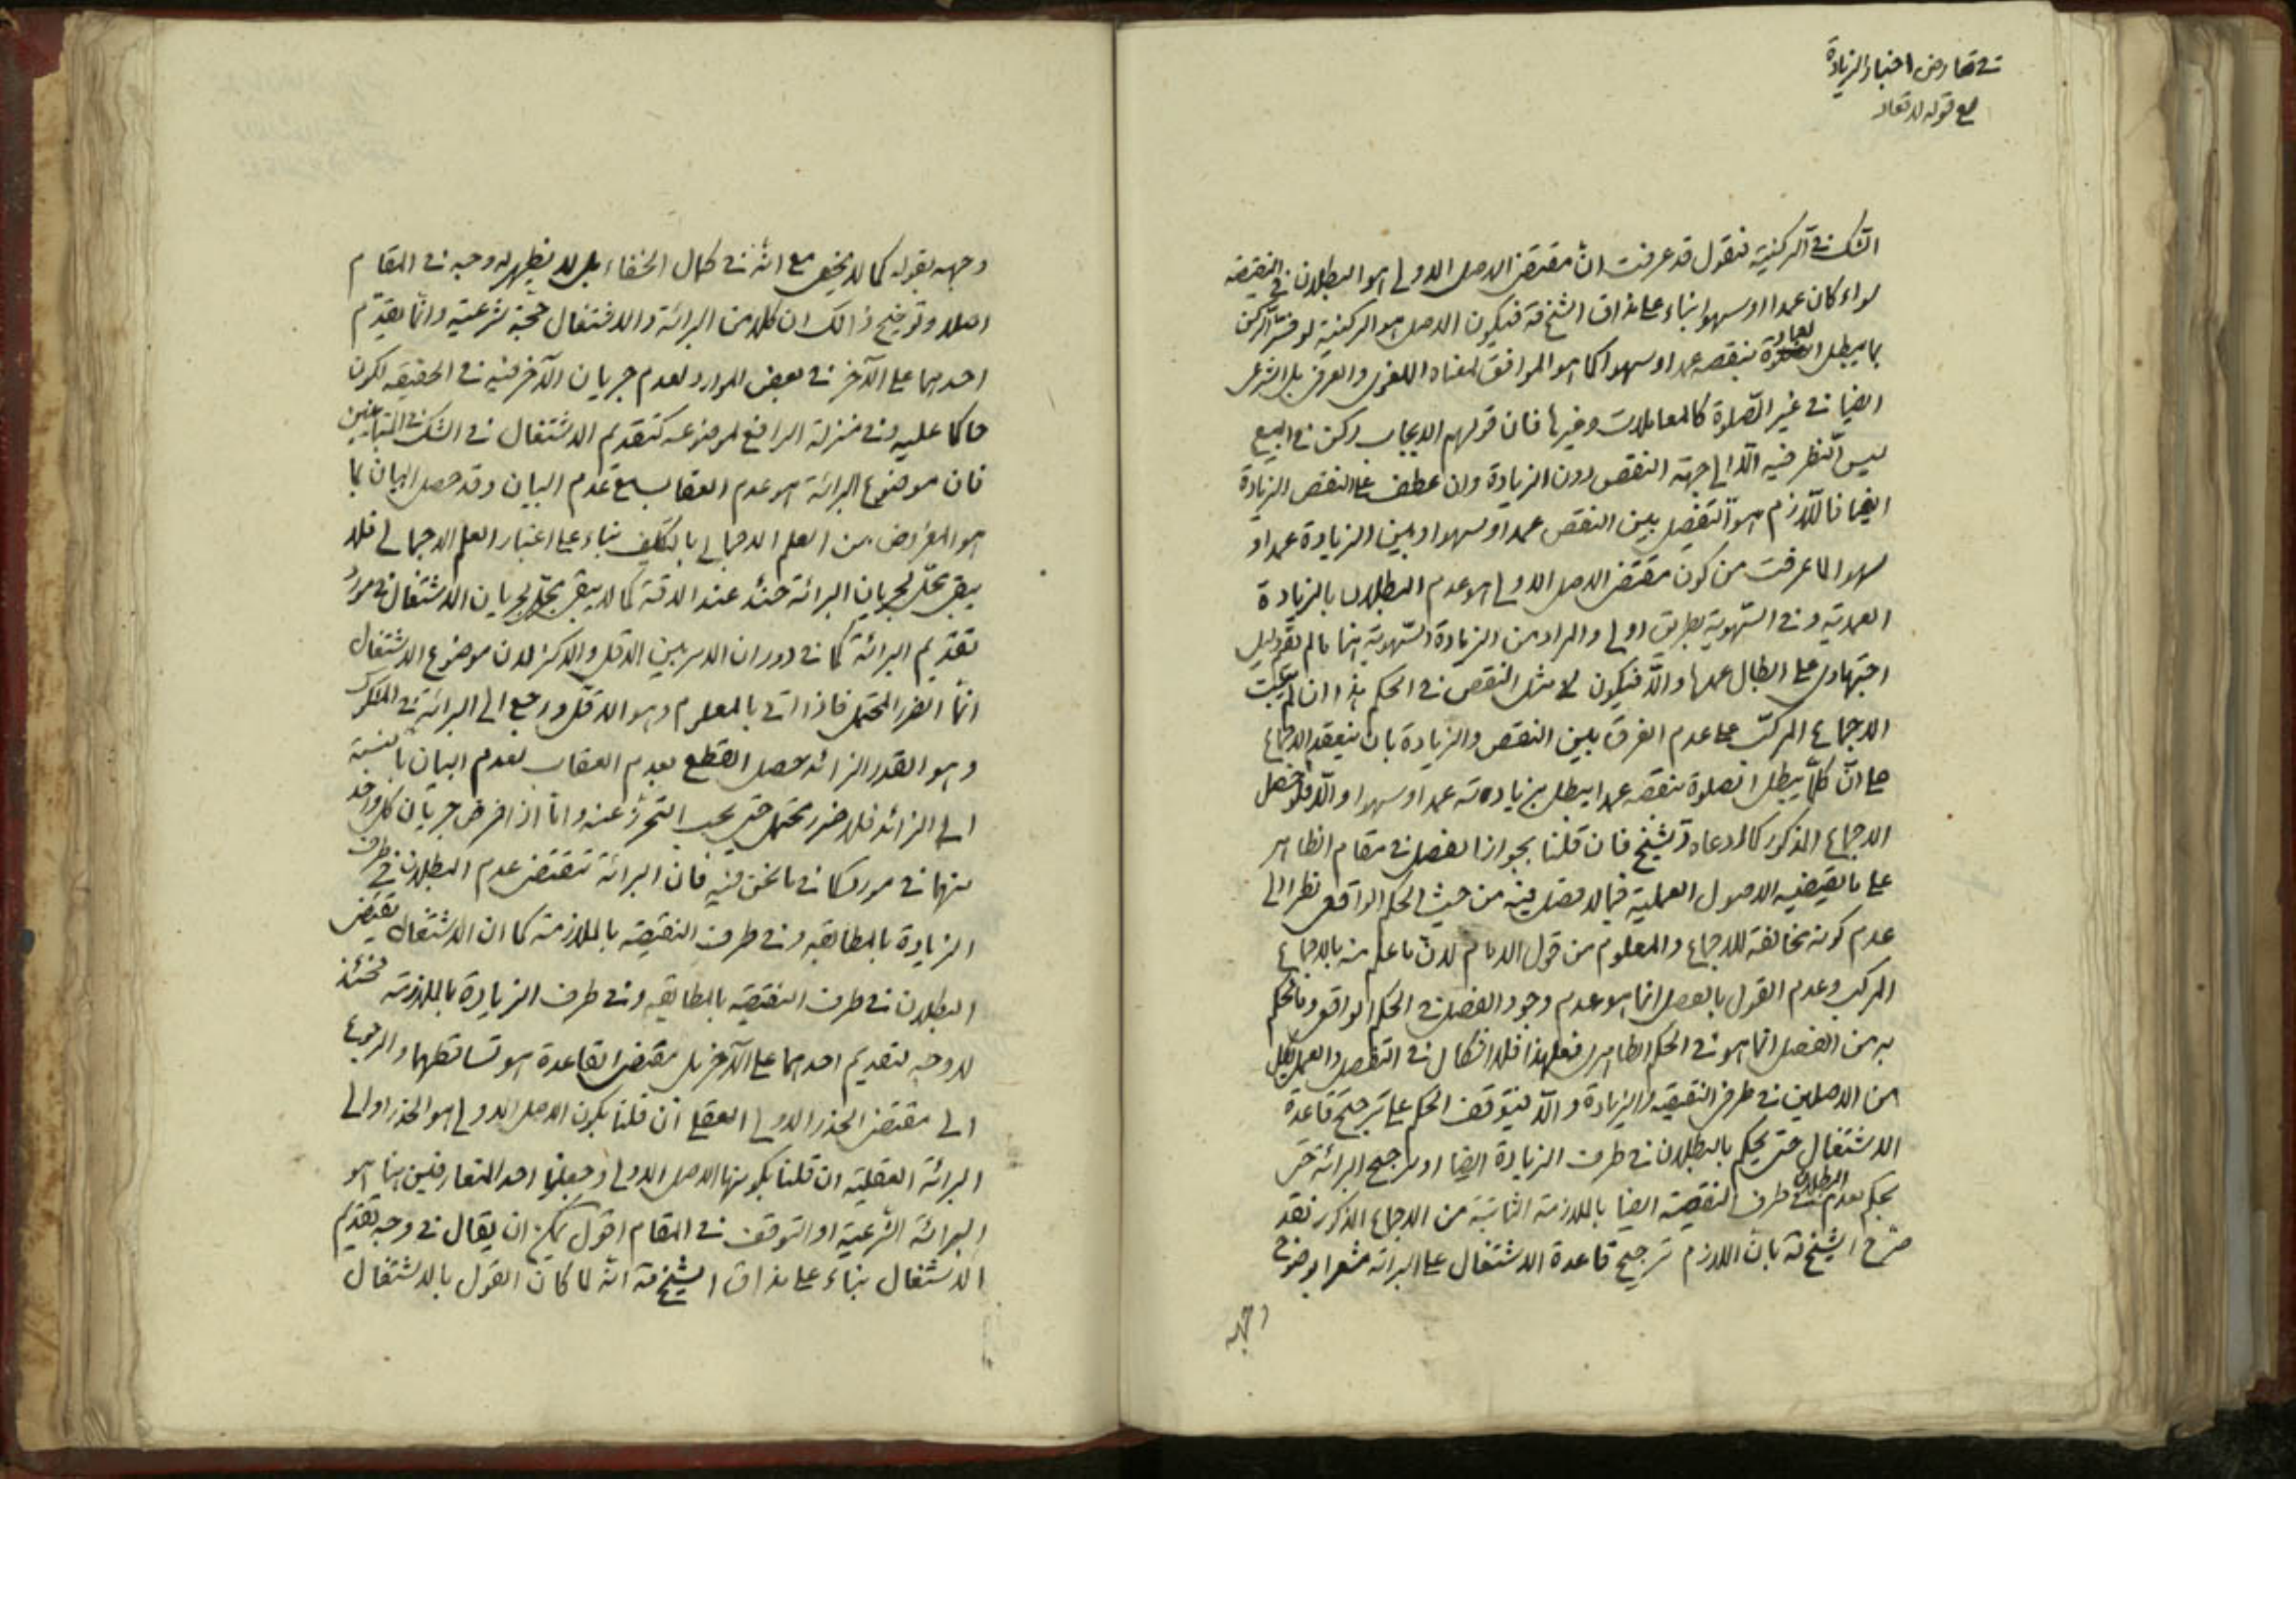 في تعارض اخبار الزيادة
مع قوله لا تعاد
الشك في الركنية فنقول قد عرفت ان مقتضى الاصل الاولي هو البطلان في النقيصة
سواء كان عمدا او سهوا بناء على مذاق الشيخ قه فيكون الاصل هو الركنية لو فسّر الركن
بما يبطل العبادة بنقصه عمدا او سهوا كما هو الموافق لمعناه اللغوي والعرفي بل الشرعي
ايضا في غير الصّلوة كالمعاملات وغيرها فان قولهم الايجاب ركن في البيع
ليس النظر فيه الّا الى جهة النقص دون الزيادة وان عطف على النقص الزيادة
ايضا فاللّازم هو التفصيل بين النقص عمدا او سهوا وبين الزيادة عمدا او
سهوا لما عرفت من كون مقتضى الاصل الاولي هو عدم البطلان بالزيادة
العمدية وفي السّهوية بطريق اولى والمراد من الزيادة السّهوية هنا ما لم يقم دليل
اجتهادي على ابطال عمدها والّا فيكون مثل النقص في الحكم هذا ان لم يثبت
الاجماع المركّب على عدم الفرق بين النقص والزيادة بان ينعقد الاجماع
على انّ كلّما يبطل الصلوة بنقصه عمدا يبطل بزيادته عمدا او سهوا والّا فلو حصل
الاجماع المذكور كما ادعاه الشيخ فان قلنا بجواز الفصل في مقام الظاهر
على ما يقتضيه الاصول العملية فيما لا فصل فيه من حيث الحكم الواقعي نظرا الى
عدم كونه مخالفة للاجماع والمعلوم من قول الامام لانّ ما علم منه بالاجماع
المركب وعدم القول بالفصل انما هو عدم وجود الفصل في الحكم الواقعي وما نحكم
به من الفصل انما هو في الحكم الظاهري فعلى هذا فلا اشكال في التفصيل والعمل بكل
من الاصلين في طرفي النقيصة والزيادة والّا فيتوقف الحكم على ترجيح قاعدة
الاشتغال حتى يحكم بالبطلان في طرف الزيادة ايضا او ترجيح البرائة حتى
يحكم بعدم البطلان في طرف النقيصة ايضا بالملازمة الثابتة من الاجماع المذكور فقد
صرّح الشيخ قه بانّ اللازم ترجيح قاعدة الاشتغال على البرائة مشعرا بوضوح
وجهه
وجهه بقوله كما لا يخفى مع انّه في كمال الخفاء بل لا يظهر له وجه في المقام
اصلا وتوضيح ذالك ان كلا من البرائة والاشتغال حجّة شرعيّة وانّما يقدّم
احدهما على الآخر في بعض الموارد لعدم جريان الآخر فيه في الحقيقة لكون
حاكما عليه وفي منزلة الرافع لموضوعه كتقديم الاشتغال في الشك في المتباينين
فان موضوع البرائة هو عدم العقاب مع عدم البيان وقد حصل البيان بما
هو المفروض من العلم الاجمالي بالتكليف بناء على اعتبار العلم الاجمالي فلا
يبقى محلّ لجريان البرائة حنئذ عند الدقة كما لا يبقى محلّ لجريان الاشتغال في موارد
تقديم البرائة كما في دوران الامر بين الاقل والاكثر لان موضوع الاشتغال
انّما الضرر المحتمل فاذا اتى بالمعلوم وهو الاقلّ ورجع الى البرائة في المشكوك
وهو القدر الزائد حصل القطع بعدم العقاب لعدم البيان بالنسبة
الى الزائد فلا ضرر محتمل حتى يجب التحرّز عنه وامّا اذا فرض جريان كل واحد
منهما في مورد كما في ما نحن فيه فان البرائة تقتضي عدم البطلان في طرف
الزيادة بالمطابقة وفي طرف النقيصة بالملازمة كما ان الاشتغال يقتضي
البطلان في طرف النقيصة بالمطابقة وفي طرف الزيادة بالملازمة فحنئذ
لا وجه لتقديم احدهما على الآخر بل مقتضى القاعدة هو تساقطهما والرجوع
الى مقتضى الحذر الاولي العقلي ان قلنا بكون الاصل الاولي هو الحذر او الى
البرائة العقلية ان قلنا بكونها الاصل الاولي وجعلنا احد المتعارضين هنا هو
البرائة الشّرعية او التوقف في المقام اقول يمكن ان يقال في وجه تقديم
الاشتغال بناء على مذاق الشيخ قه انّه لما كان القول بالاشتغال